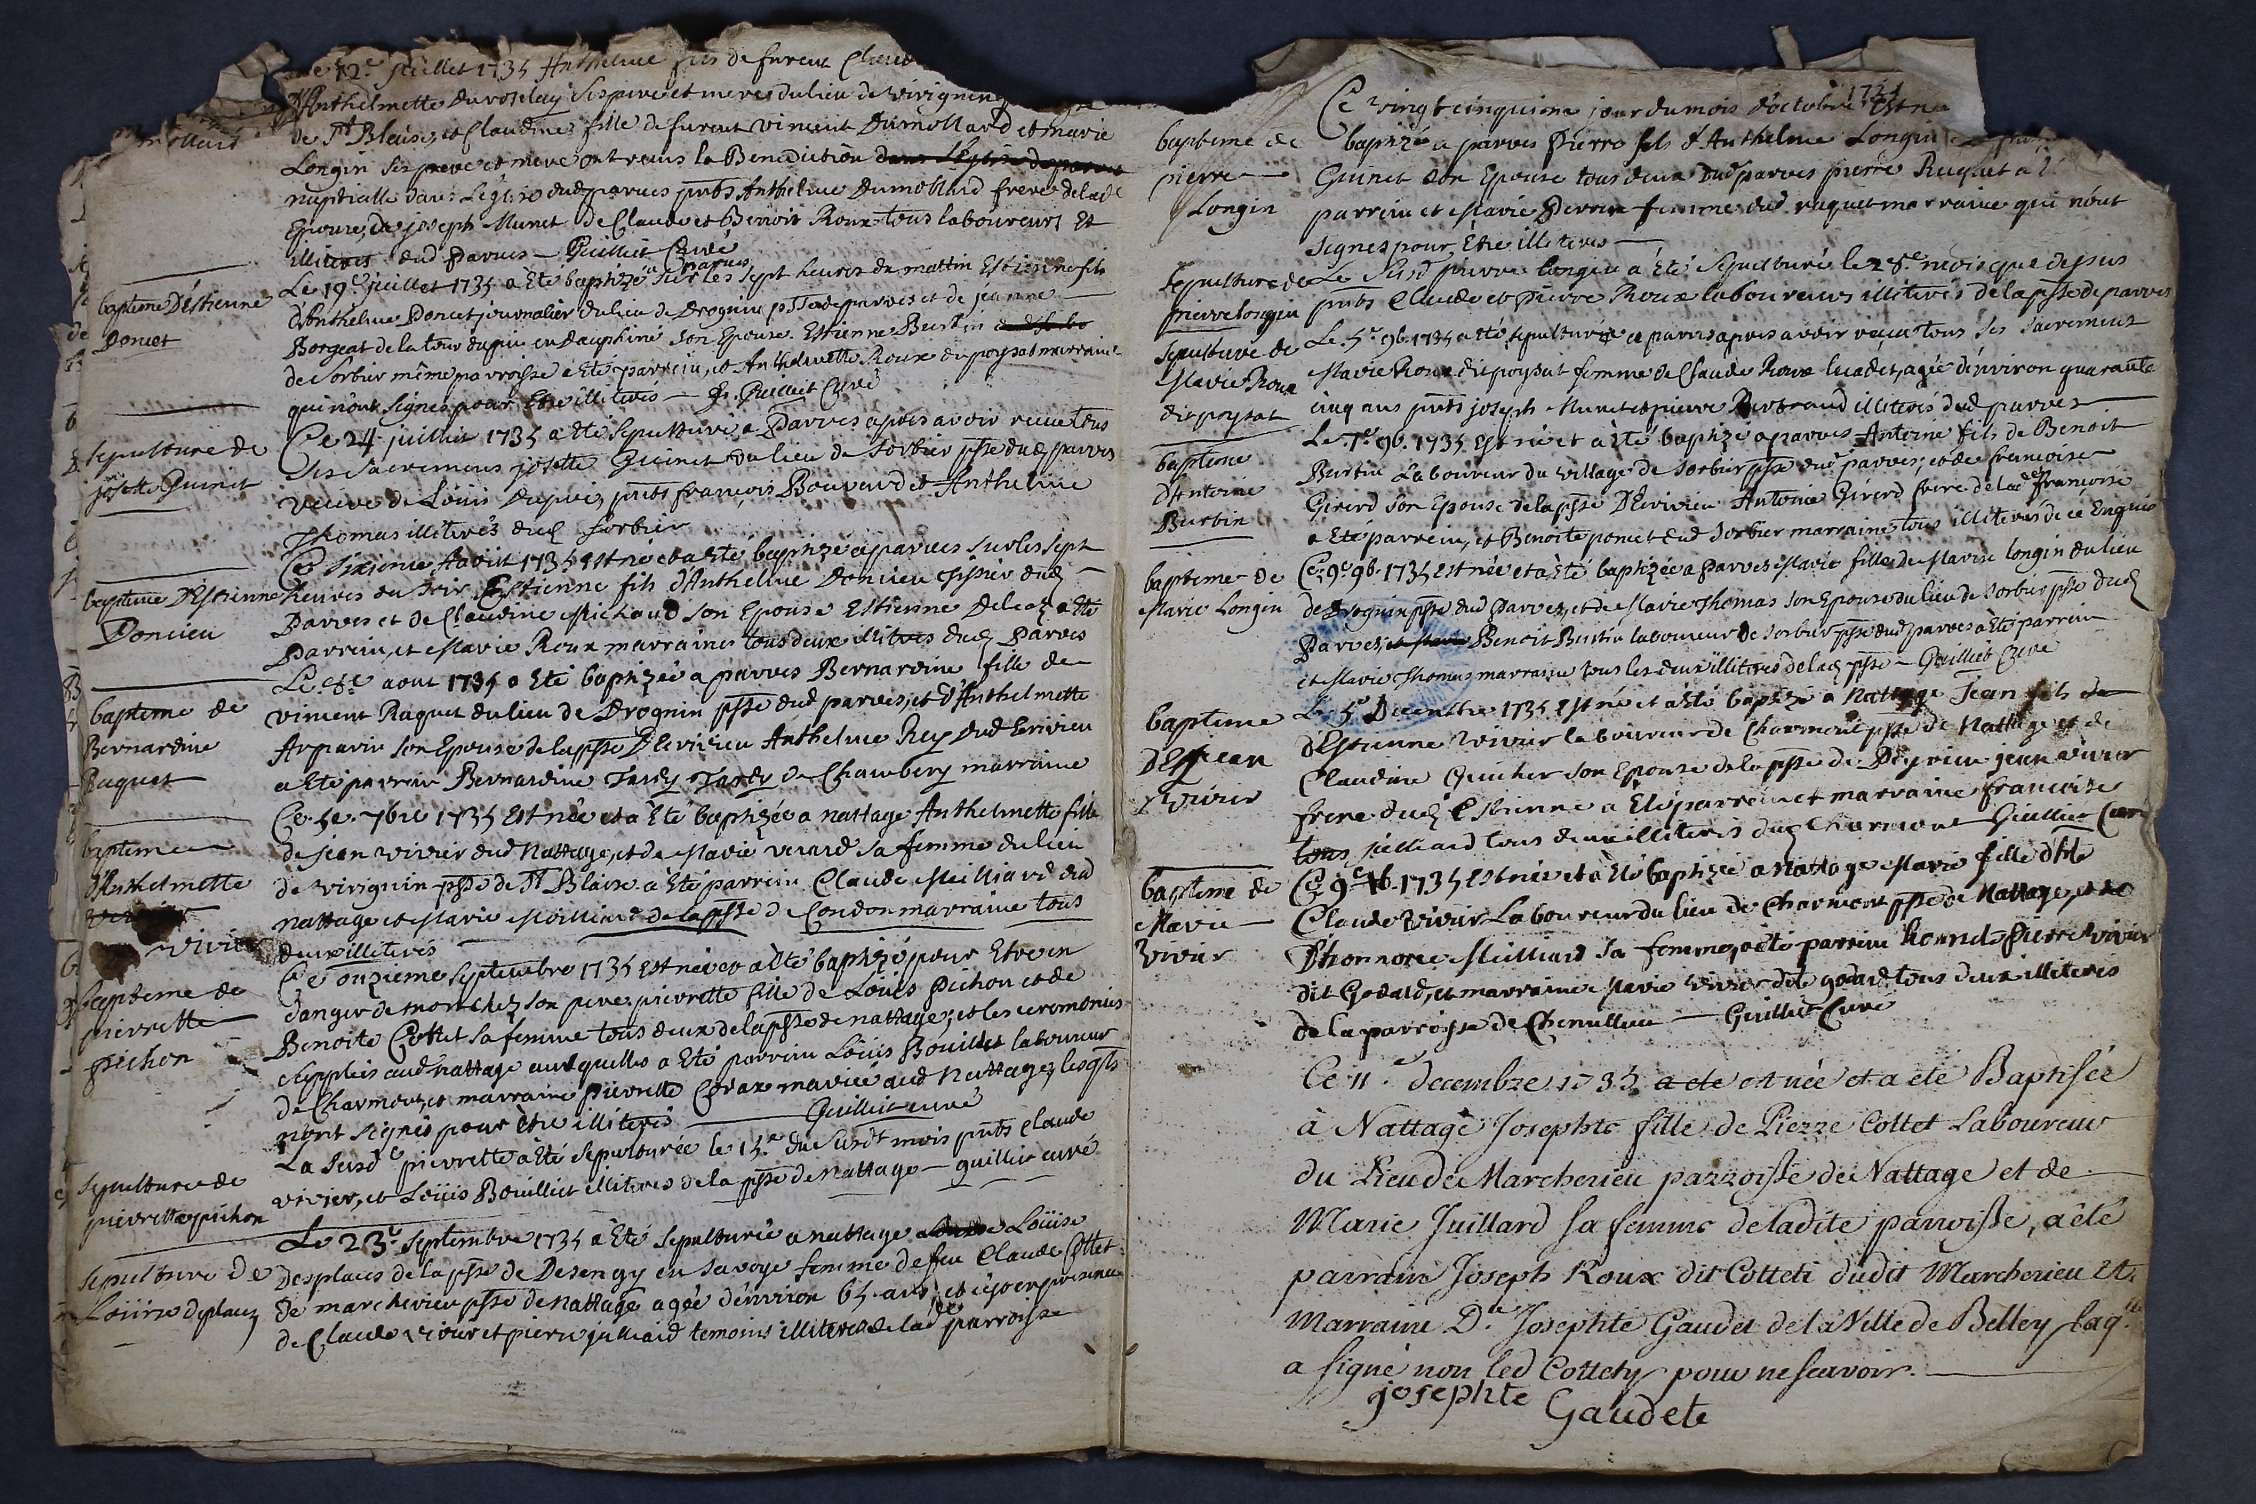 12e juillet 1735 Anthelme fils de furent Claude
D'Anthelmette Duroselay ses pere et mere du lieu de virignin
mollard
de St Blaise, et Claudine fille de furent vincent Dumollard et marie
Longin ses pere et mere ont reçus la Benediction dans L'Eglise de parves
nuptialle dans L'eglise dud parves pnts Anthelme Dumollard frere de lade
Epouse, de joseph Munet de Claude et Benoit Roux tous laboureurs Et
illiteres dud Parves — Guilliet Curé
baptème D'Estienne
Doncet
Le 19e juillet 1735 a Eté baptizé a parves sur les sept heures du mattin Estienne fils
d'Anthelme Doncet journalier du lieu de Drognin psse de parves et de jeanne
Borgeat de la tour dupin en dauphiné son Epouse. Estienne Burtin
de Sorbier même parroisse a Eté parrein, et Anthelmette Roux du poysat marraine
qui n'ont signés pour Etre illiterés — Guilliet Curé
sepulture de
josette Guinet
Ce 24 juillet 1735 a Eté sepulturée a Parves apres avoir reçue tous
ses sacremens josette Guinet du lieu de Sorbier psse dud parves
veuve de Loüis Dupuis, pnts françois Bouvard et Anthelme
Thomas illiterés dud Sorbier
baptème D'Estienne
Doncieu
Ce sixieme Aout 1735 est né et a Eté baptizé a parves sur les sept
heures du soir Estienne fils d'Anthelme Doncieu Tissier dud
Parves et de Claudine Michaud son Epouse Estienne Deleaz a Eté
Parrein, et Marie Roux marraine tous deux illiteres dud Parves
bapteme de
Bernardine
Raquet
Le 8e aout 1735 a Eté baptizée a parves Bernardine fille de
vincent Raquet du lieu de Drognin psse dud parves, et d'Anthelmette
Arparin son Epouse de la psse D'Erivieu Anthelme Rey dud Erivieu
a Eté parrein Bernardine Tardy Tardy de Chambery marraine
bapteme
d'Anthelmette
vivier
Ce 5e 7bre 1735 Est née et a Eté baptizée a nattage Anthelmette fille
de jean vivier dud Nattage, et de Marie verard sa femme du lieu
de virignin psse de St Blaise a Eté parrein Claude Milliard dud
nattage et Marie de la psse de Condon marraine tous
deux illiterés
bapteme de
pierrette
pichon
Ce onzieme septembre 1735 Est née et a Eté baptizé pour Etre en
danger de mort chez son pere pierrette fille de Loüis pichon et de
Benoite Cottet sa femme tous deux de la psse de nattage; et les ceremonies
supplées aud nattage auxquelles a Eté parrein Loüis Bouillet laboureur
de Charmont, et marraine pierrette Corax mariée aud Nattage, lesqls
n'ont signés pour être illiterés — Guilliet curé
sepulture de
pierrette pichon
La susde pierrette a Eté sepulturée le 15e du susdt mois pnts Claude
vivier, et Loüis Bouilliet illiteres de la psse de Nattage — guilliet curé
sepulture de
Loüise deplaces
Le 23e septembre 1735 a Eté sepulturée a nattage Loüise
Desplaces de la psse de Desengy en Savoye femme de feu Claude Cottet
de marcherieu psse de Nattage agée d'environ 65 ans, et ce en presence
de Claude vivier et pierre juilliard temoins illiteres de lade parroisse
1735
bapteme de
pierre
Longin
Ce vingt cinquieme jour du mois d'octobre Est né
baptizé a parves Pierre fils d'Anthelme Longin
Guinet son Epouse tous deux dud parves pierre Ruquet a
parrein et Marie Perron femme dud ruquet marraine qui n'ont
signes pour Etre illiteres —
sepulture de
pierre longin
Le susd pierre longin a Eté sepulturé le 28e mois que dessus
pnts Claude et Pierre Roux laboureurs illiterés de la psse de parves
sepulture de
Marie Roux
dit poysat
Le 5e 9b. 1735 a eté sepulturée a parves apres avoir reçue tous ses sacremens
Marie Roux dit poysat femme de Claude Roux le cadet, agée d'environ quarante
cinq ans pnts joseph Munet et pierre Bertrand illiterés dud parves
bapteme
d'Antoine
Burtin
Le 7e 9b. 1735 est né et a Eté baptizé a parves Antoine fils de Benoit
Burtin Laboureur du village de Sorbier psse dud parves, et de françoise
Girerd son Epouse de la psse D'Erivieu Antoine Girerd frere de lade françoise
a Eté parrein, et Benoite poncet dud Sorbier marraine tous illiterés de ce Enquis
bapteme de
Marie Longin
Ce 9e 9b. 1735 est née et a Eté baptizée a Parves Marie fille de Marin longin du lieu
de Drognin psse dud Parves, et de Marie Thomas son Epouse du lieu de Sorbier psse dud
Parves, Benoit Burtin laboureur de Sorbier psse dud parves a Eté parrein
et Marie Thomas marraine tous les deux illiteres de lad psse — Guilliet Curé
bapteme
D'Jean
Vivier
Le 5e Decembre 1735 Est né et a Eté baptizé a Nattage Jean fils de
d'Estienne Vivier laboureur de Charmont psse de Nattage et de
Claudine Guicher son Epouse de la psse de Peyrieu jean vivier
frere dud Estienne a Eté parrein et marraine francoise
juilliard tous deux illiteres dud Charmont Guilliet Curé
bapteme de
Marie
Vivier
Ce 9e Xb. 1735 Est née et a Eté baptizée a Nattage Marie fille d'He
Claude Vivier Laboureur du lieu de Charmont psse de Nattage, et de
D'honnorée Milliard sa femme, a été parrein honnete Pierre Vivier
dit Godard, et marraine Marie vivier dite godard tous deux illiteres
de la parroisse de Chemillieu — Guilliet Curé
Ce 11e decembre 1735 a ete est née et a eté Baptisée
à Nattage Josephte fille de Pierre Cottet Laboureur
du Lieu de Marcherieu parroisse de Nattage et de
Marie Juillard sa femme de ladite parroisse, a été
parrain Joseph Roux dit Cotteti dudit Marcherieu Et
Marraine Dlle Josephte Gaudet de la Ville de Belley laqlle
a signé non led Cottety pour ne scavoir.
josephte Gaudete